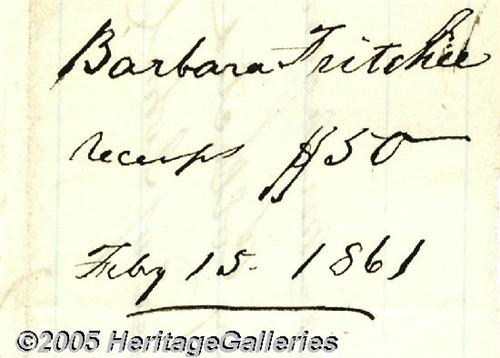 Barbara Fritchie
receipt $50
Feby 15. 1861
©2005 HeritageGalleries